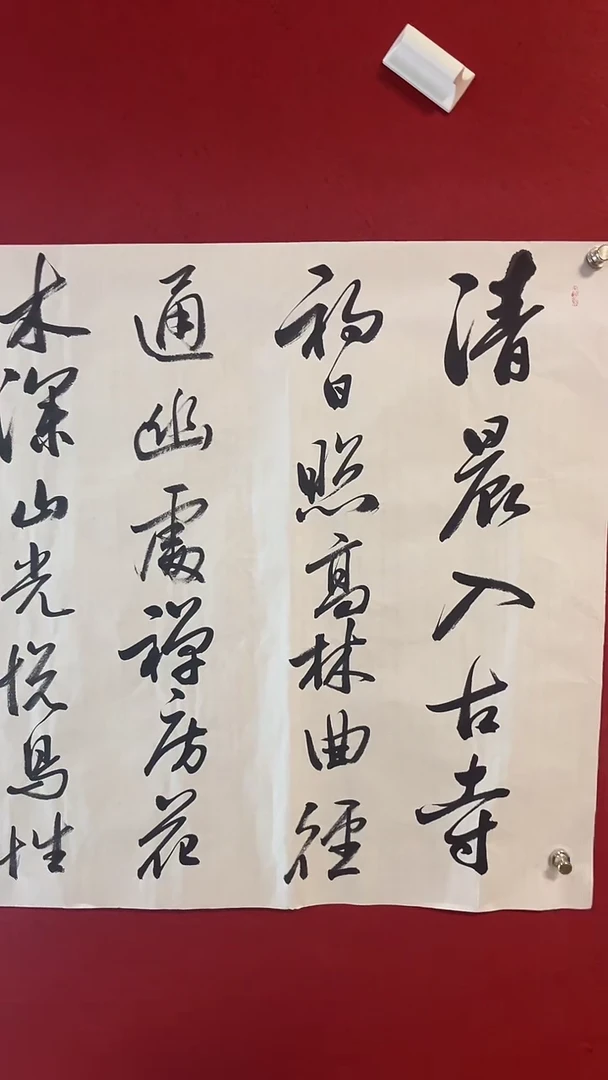 清晨入古寺
初日照高林曲徑
通幽處禅房花
木深山光悦鳥性